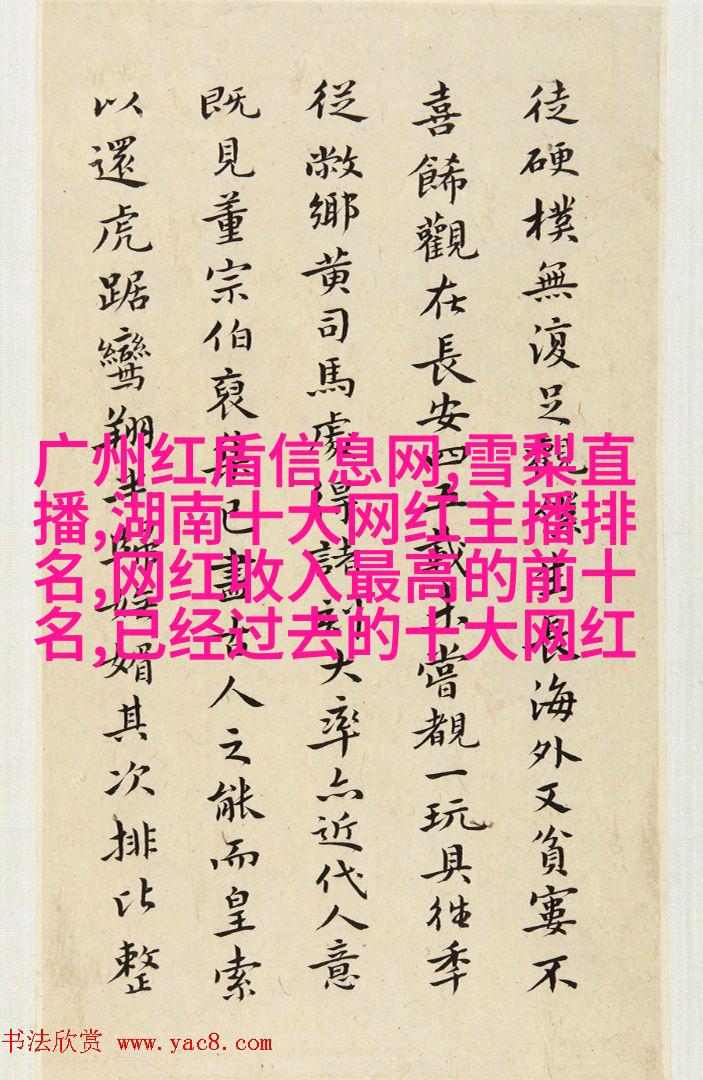 徒硬樸無復足觀僕生長海外又貧寠不
喜餙觀在長安四五載未嘗覩一玩具往秊
從敝鄉黄司馬處得諸刻大率亦近代人意
既見董宗伯裒集已盡古人之能而皇索
以還虎踞鸞翔歸妍媚其次排比整
广州红盾信息网,雪梨直
播,湖南十大网红主播排
名,网红收入最高的前十
名,已经过去的十大网红
书法欣赏 www.yac8.com